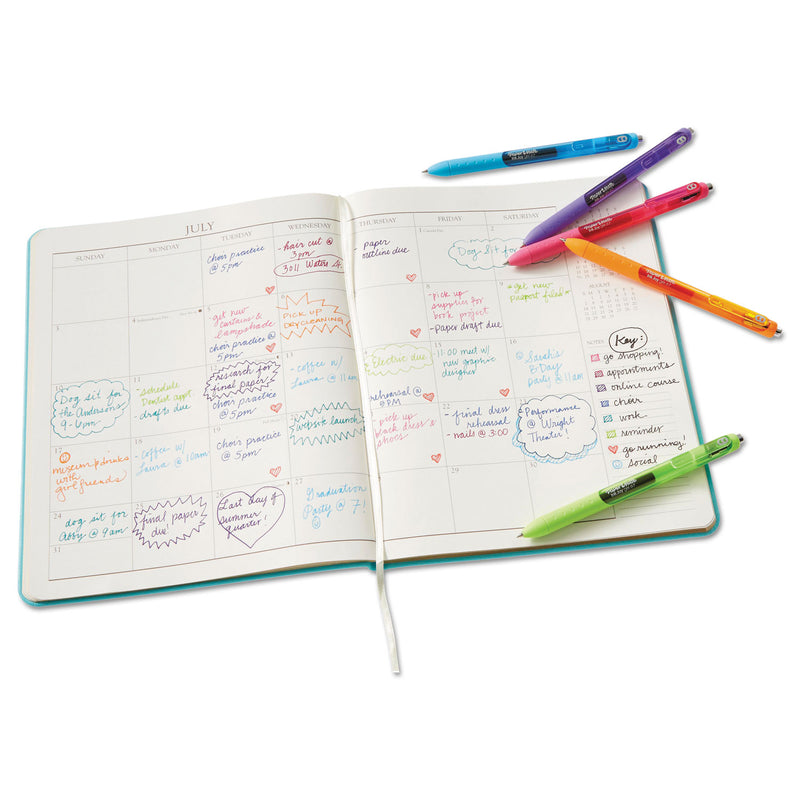 JULY
SUNDAY
MONDAY
TUESDAY
WEDNESDAY
THURSDAY
FRIDAY
SATURDAY
choir practice
@ 5pm
- hair cut @
3pm
3011 Waters St.
- paper
outline due
1 Canada Day
2
Dog Sit for
3
4 Independence Day
- get new
curtains &
lampshade
choir practice
@ 5pm
PICK UP
DRYCLEANING
8
- pick up
supplies for
book project
- paper draft due
9
get new
passport filed
10
Dog sit for
the Andersons
9-6pm
11
- schedule
Dentist appt.
- drafts due
research for
final paper
choir practice
@ 5pm
13
- coffee w/
Laura @ 11am
Electric due
rehearsal @
8PM
15
11:00 meet w/
new graphic
designer
16
Sarah's
B-Day
Party @ 11am
17
museum+drinks
with
girlfriends
18
- coffee w/
Laura @ 10am
19
choir practice
@ 5pm
20
website launch
- pick up
black dress &
shoes
22
final dress
rehearsal
- nails @ 3:00
Performance
@ Wright
Theater!
24
dog sit for
Abby @ 9am
25
final paper
due!
26
Last day of
summer
quarter!
27
Graduation
Party @ 7!
29
30
31
AUGUST
NOTES
Key:
go shopping!
appointments
online course
choir
work
reminder
go running!
social
Paper Mate
INKJOY
Paper Mate
Paper Mate
Paper Mate
Paper Mate
INKJOY